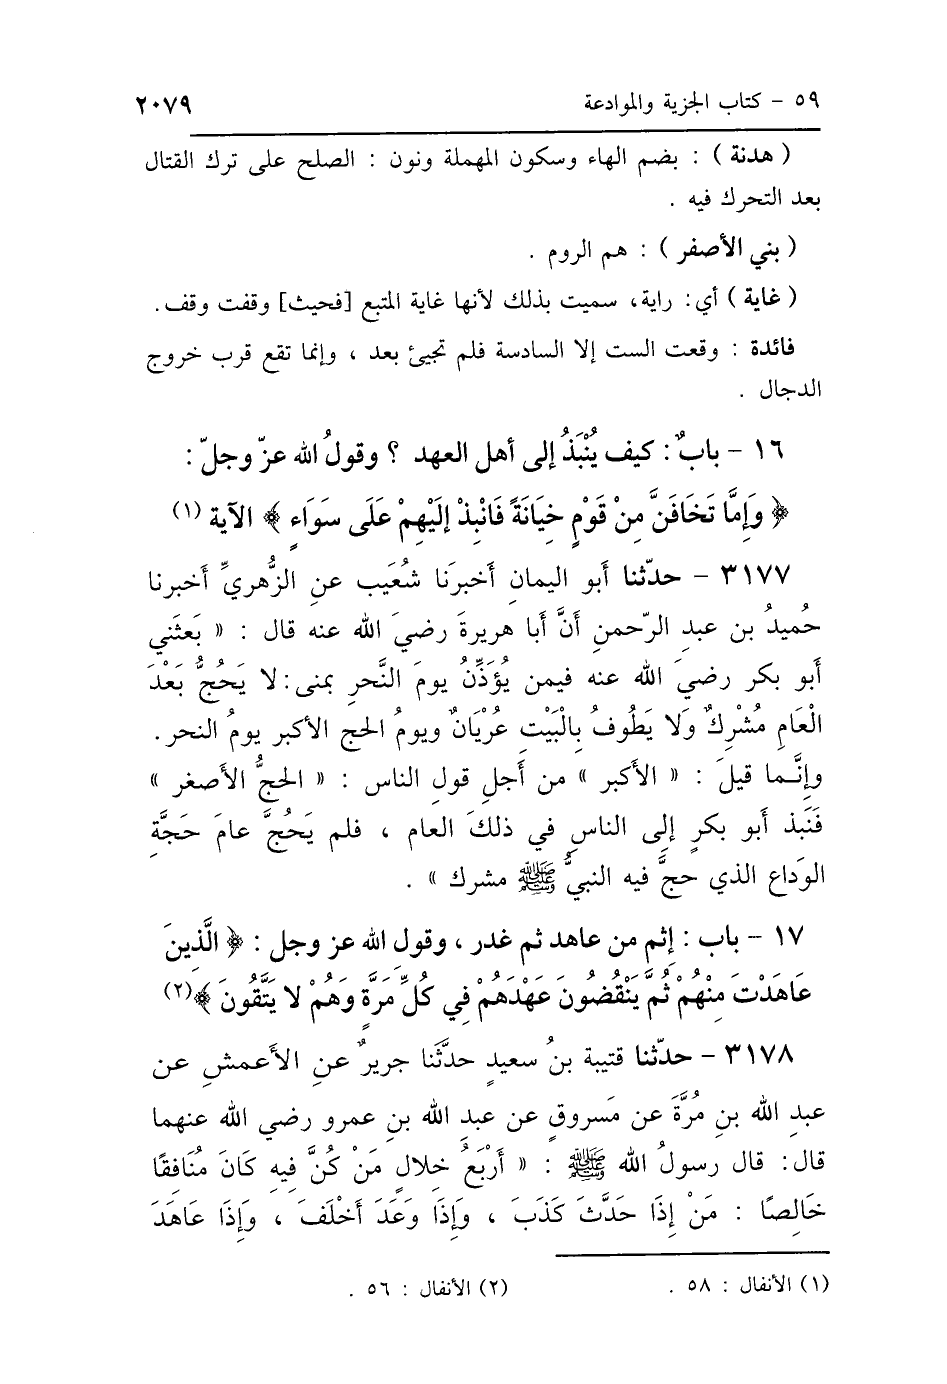 ٥٩ - كتاب الجزية والموادعة ٢٠٧٩
( هدنة ) : بضم الهاء وسكون المهملة ونون : الصلح على ترك القتال
بعد التحرك فيه .
( بني الأصفر ) : هم الروم .
( غاية ) أي: راية، سميت بذلك لأنها غاية المتبع [فحيث] وقفت وقف.
فائدة : وقعت الست إلا السادسة فلم تجيئ بعد ، وإنما تقع قرب خروج
الدجال .
١٦ - بابٌ: كيف يُنْبَذُ إلى أهل العهد ؟ وقولُ الله عزّ وجلّ:
﴿ وَإِمَّا تَخَافَنَّ مِنْ قَوْمٍ خِيَانَةً فَانْبِذْ إِلَيْهِمْ عَلَى سَوَاءٍ ﴾ الآية (١)
٣١٧٧ - حدّثنا أبو اليمانِ أخبرَنا شُعَيب عنِ الزُّهريِّ أخبرنا
حُميدُ بن عبدِ الرّحمنِ أنَّ أبا هريرةَ رضيَ الله عنه قال : « بَعثَني
أبو بكر رضيَ الله عنه فيمن يُؤَذِّنُ يومَ النَّحرِ بمنى: لا يَحُجُّ بَعْدَ
الْعَامِ مُشْرِكٌ وَلا يَطُوفُ بِالْبَيْتِ عُرْيَانٌ ويومُ الحج الأكبر يومُ النحر.
وإنَّما قيلَ : « الأكبر » من أَجلِ قولِ الناس : « الحجُّ الأصغر »
فَنَبَذ أبو بكرٍ إلى الناسِ في ذلكَ العام ، فلم يَحُجَّ عامَ حَجَّةِ
الوَداع الذي حجَّ فيه النبيُّ ﷺ مشرك » .
١٧ - باب : إثم من عاهد ثم غدر ، وقولِ الله عز وجل : ﴿ الَّذِينَ
عَاهَدْتَ مِنْهُمْ ثُمَّ يَنْقُضُونَ عَهْدَهُمْ فِي كُلِّ مَرَّةٍ وَهُمْ لا يَتَّقُونَ ﴾(٢)
٣١٧٨ - حدّثنا قتيبة بنُ سعيدٍ حدَّثَنا جريرٌ عنِ الأَعمشِ عن
عبدِ الله بنِ مُرَّةَ عن مَسروقٍ عن عبدِ الله بنِ عمرو رضي الله عنهما
قال: قال رسولُ الله ﷺ : « أَرْبَعُ خِلالٍ مَنْ كُنَّ فِيهِ كَانَ مُنَافِقًا
خَالِصًا : مَنْ إِذَا حَدَّثَ كَذَبَ ، وَإِذَا وَعَدَ أَخْلَفَ ، وَإِذَا عَاهَدَ
(١) الأنفال : ٥٨ . (٢) الأنفال : ٥٦ .